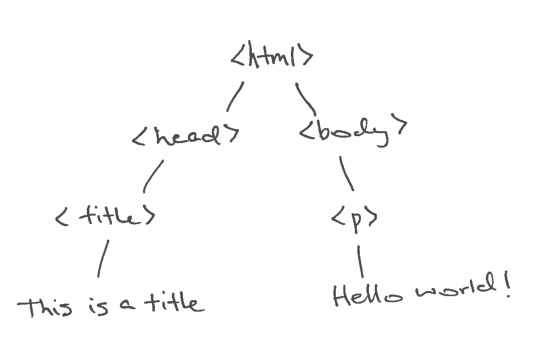 <html>
<head> <body>
<title> <p>
This is a title Hello world!